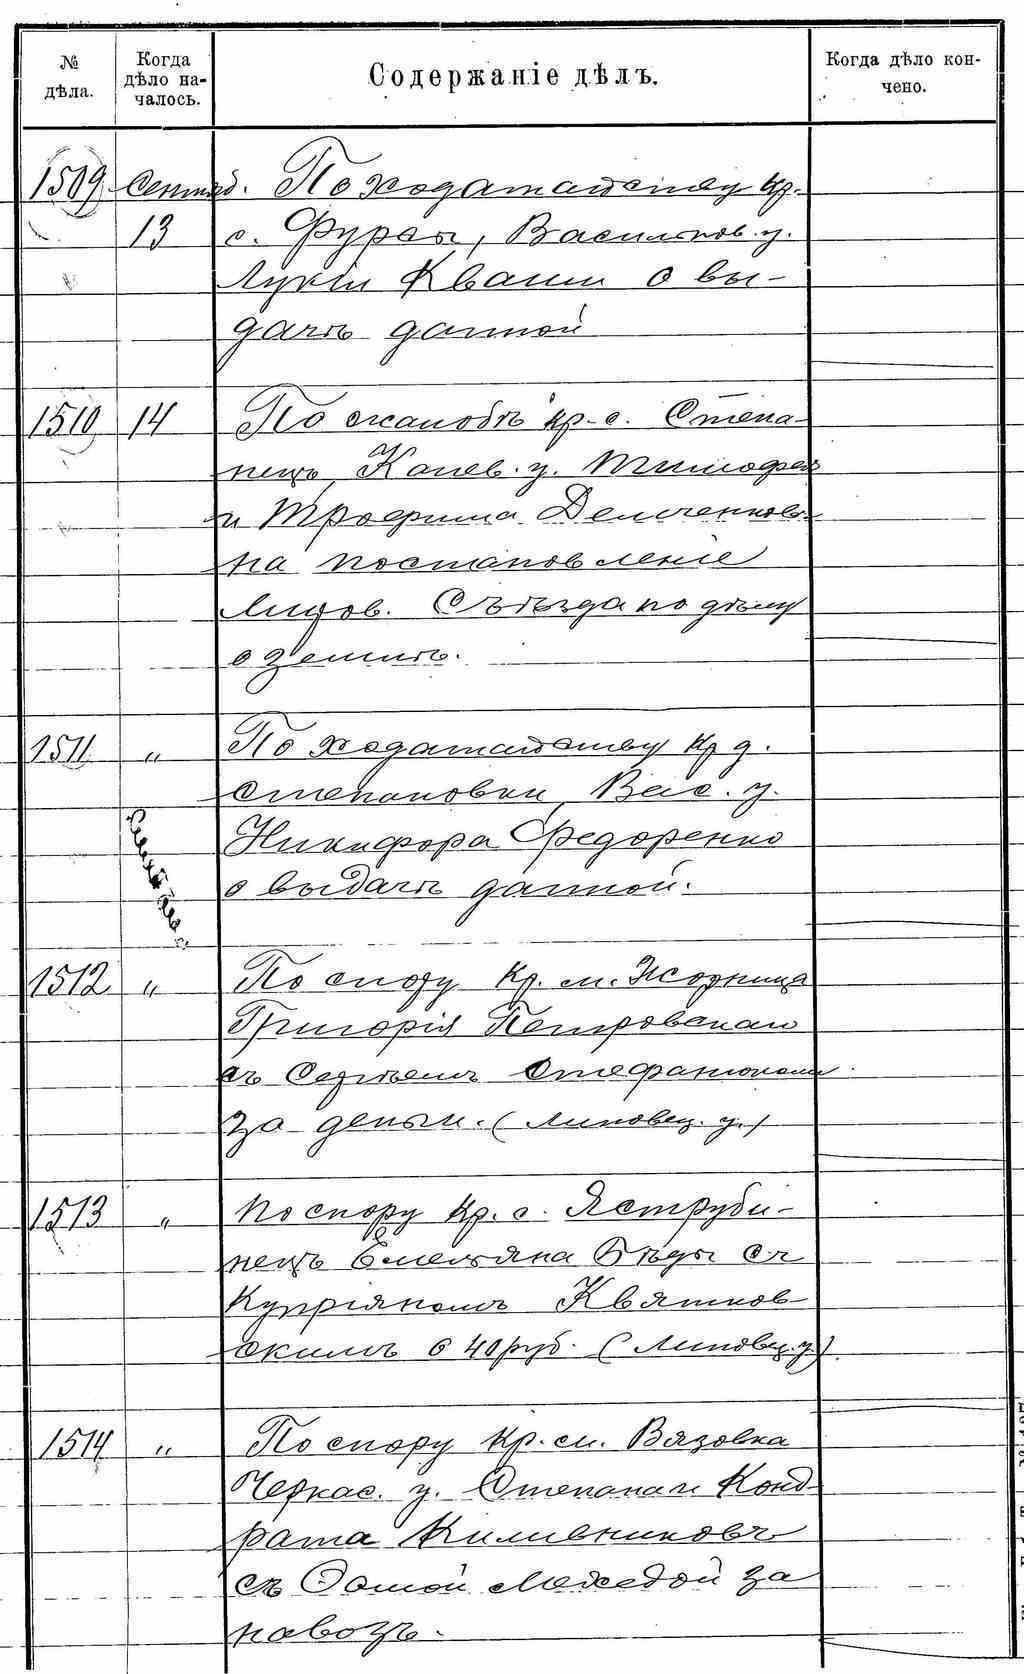 № дѣла.
Когда дѣло на-
чалось.
Содержаніе дѣлъ.
Когда дѣло кон-
чено.
1509 Сентяб. По ходатайству кр.
13 с. Фурсы, Васильков. у.
Лукіи Кваши о вы-
дачѣ данной
1510 14 По жалобѣ кр. с. Степа-
нецъ, Канев. у. Тимофея
и Трофима Демченковъ
на постановленіе
Миров. Съѣзда по дѣлу
о землѣ.
1511 " По ходатайству кр д.
Степановки, Вас. у.
Никифора Федоренко
о выдачѣ данной.
1512 " По спору кр. м. Жорница
Григорія Петровскаго
съ Сергѣемъ Стефанюкомъ
за деньги. (Липовец. у.)
1513 " По спору кр. с. Яструби-
нецъ Емельяна Бѣды съ
Купріяномъ Квятков-
скимъ о 40 руб. (Липовец. у.)
1514 " По спору кр. с. Вязовка
Черкас. у. Степана и Конд-
рата
съ Ѳомой за
навозъ.